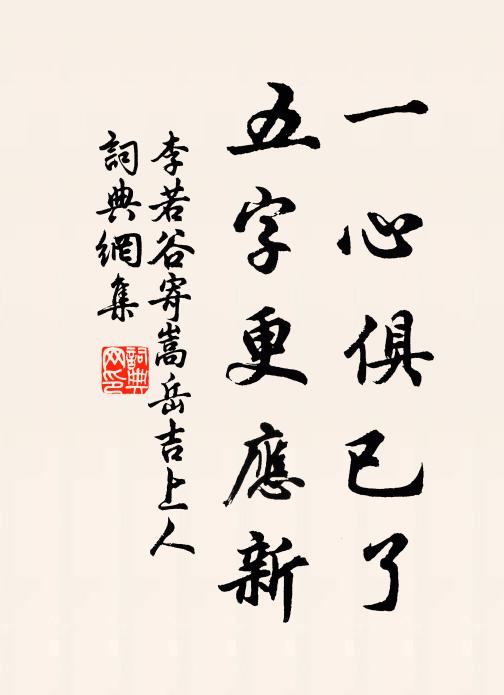 一心俱已了
五字更應新
李若谷寄嵩岳吉上人
詞典網集
詞典网印